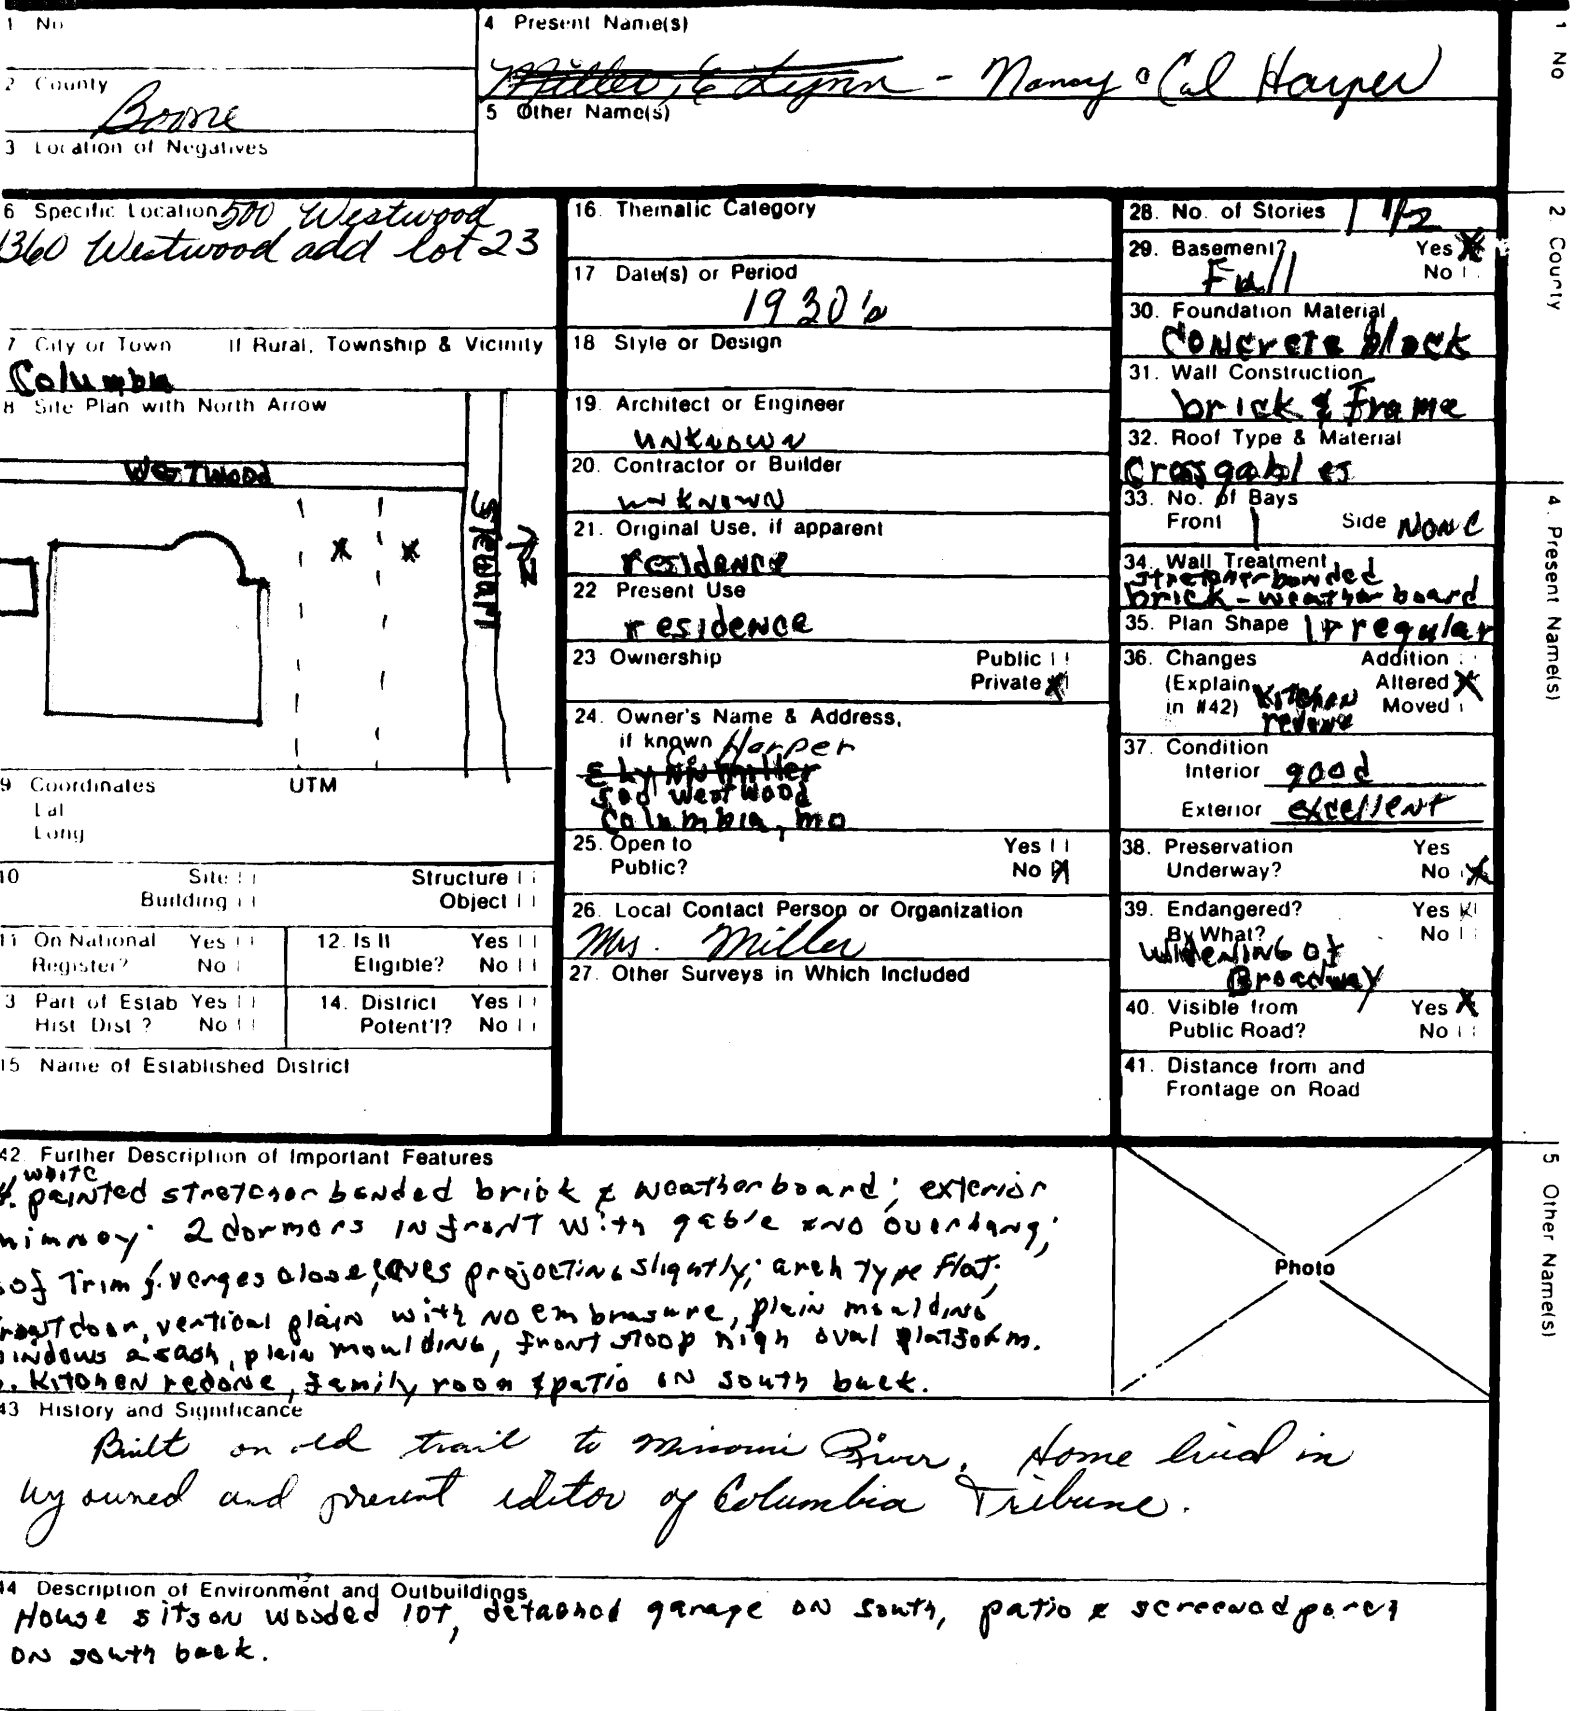 1 No
4 Present Name(s)
Miller, E Lynn - Nancy & Cal Harper
2 County
Boone
5 Other Name(s)
3 Location of Negatives
6 Specific Location 500 Westwood
1360 Westwood add lot 23
7 City or Town If Rural, Township & Vicinity
Columbia
8 Site Plan with North Arrow
WESTWOOD
Stewart
N
9 Coordinates UTM
Lat
Long
10 Site Structure
Building Object
11 On National Yes
Register? No
12. Is It Yes
Eligible? No
13 Part of Estab Yes
Hist Dist ? No
14. District Yes
Potent'l? No
15 Name of Established District
16. Thematic Category
17 Date(s) or Period
1930's
18 Style or Design
19. Architect or Engineer
unknown
20. Contractor or Builder
unknown
21. Original Use, if apparent
residence
22 Present Use
residence
23 Ownership Public
Private X
24. Owner's Name & Address,
if known Harper
E Lynn Miller
500 Westwood
Columbia, mo
25. Open to Yes
Public? No X
26. Local Contact Person or Organization
Mrs. Miller
27. Other Surveys in Which Included
28. No. of Stories 1 1/2
29. Basement? Yes X
Full No
30. Foundation Material
concrete block
31. Wall Construction
brick & frame
32. Roof Type & Material
Cross gables
33. No. of Bays
Front 1 Side NONE
34. Wall Treatment
stretcher bonded
brick - weather board
35. Plan Shape Irregular
36. Changes Addition
(Explain Altered X
in #42) Kitchen Moved
redone
37. Condition
Interior good
Exterior excellent
38. Preservation Yes
Underway? No X
39. Endangered? Yes X
By What? No
widening of
Broadway
40. Visible from Yes X
Public Road? No
41. Distance from and
Frontage on Road
42. Further Description of Important Features
white
painted stretcher bonded brick & weatherboard; exterior
himney; 2 dormers in front with gable and overhang;
oof Trim f. verges close, eaves projecting slightly; arch type flat;
ront door, vertical plain with no embrasure, plain moulding
indows a sash, plain moulding, front stoop high oval platform.
Kitchen redone, family room & patio on south back.
Photo
43 History and Significance
Built on old trail to Missouri River. Home lived in
by owned and present editor of Columbia Tribune.
44 Description of Environment and Outbuildings
House sits on wooded lot, detached garage on south, patio & screened porch
on south back.
1 No
2. County
4. Present Name(s)
5 Other Name(s)